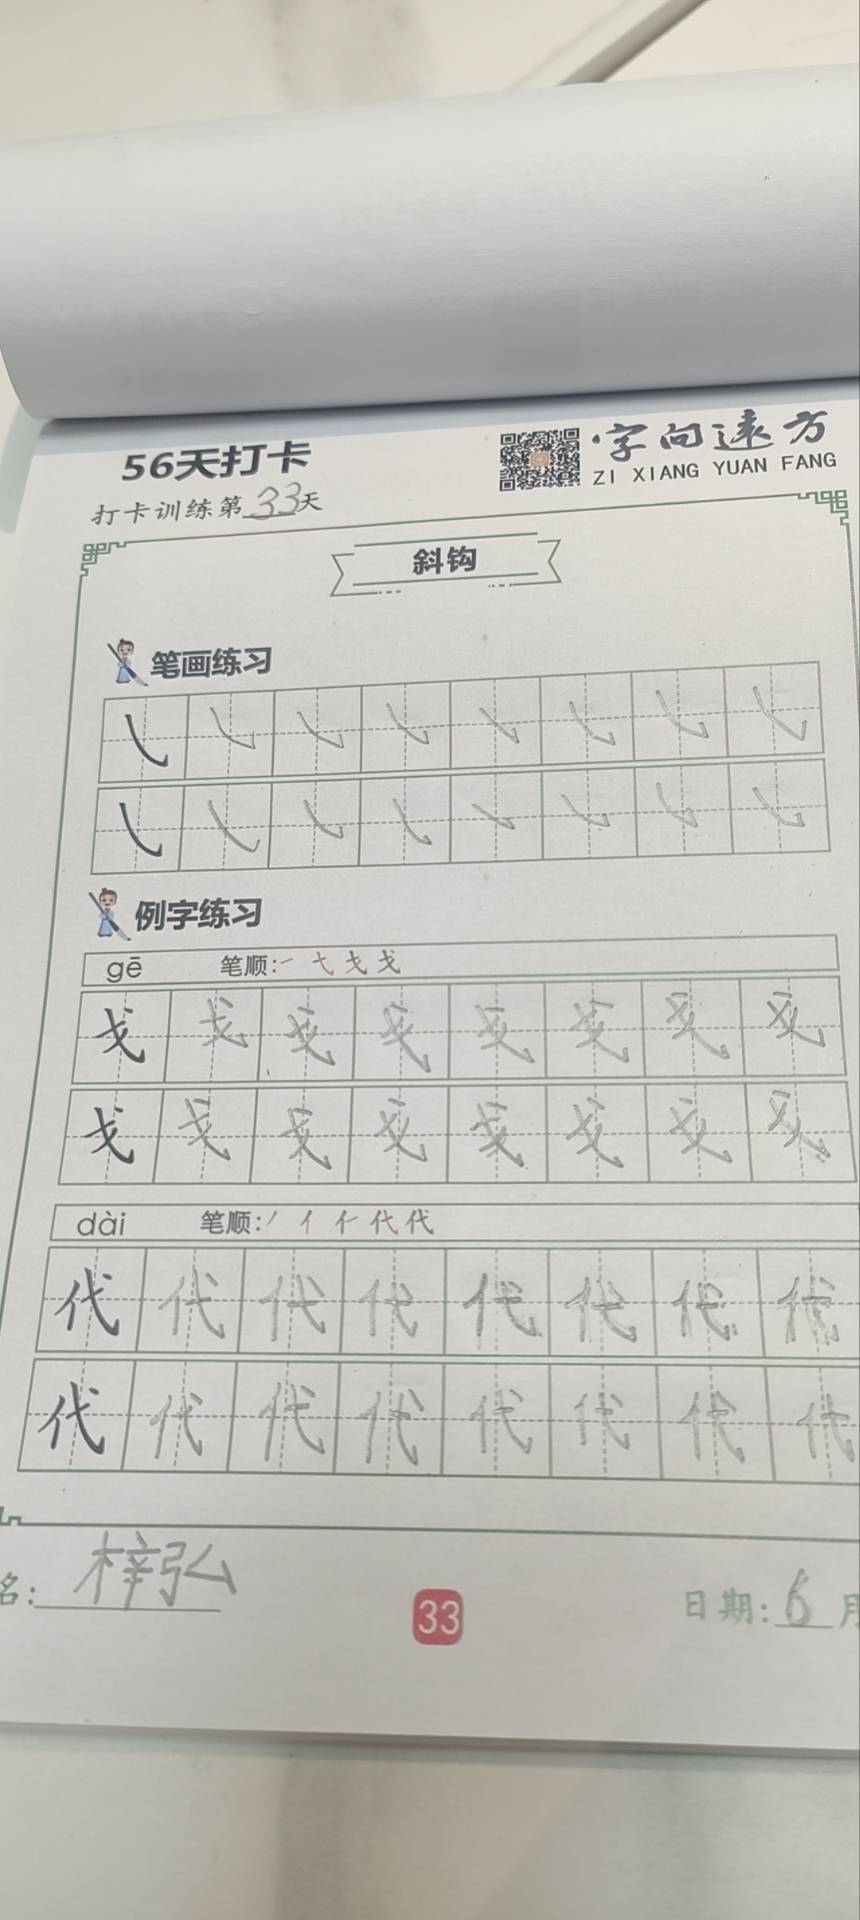 56天打卡
字向远方
ZI XIANG YUAN FANG
打卡训练第33天
斜钩
笔画练习
㇂㇂㇂㇂㇂㇂㇂㇂
㇂㇂㇂㇂㇂㇂㇂㇂
例字练习
gē 笔顺:一 弋 戈 戈
戈戈戈戈戈戈戈戈
戈戈戈戈戈戈戈戈
dài 笔顺:丿 亻 仁 代 代
代代代代代代代代
代代代代代代代代
名:梓弘
33
日期:6月